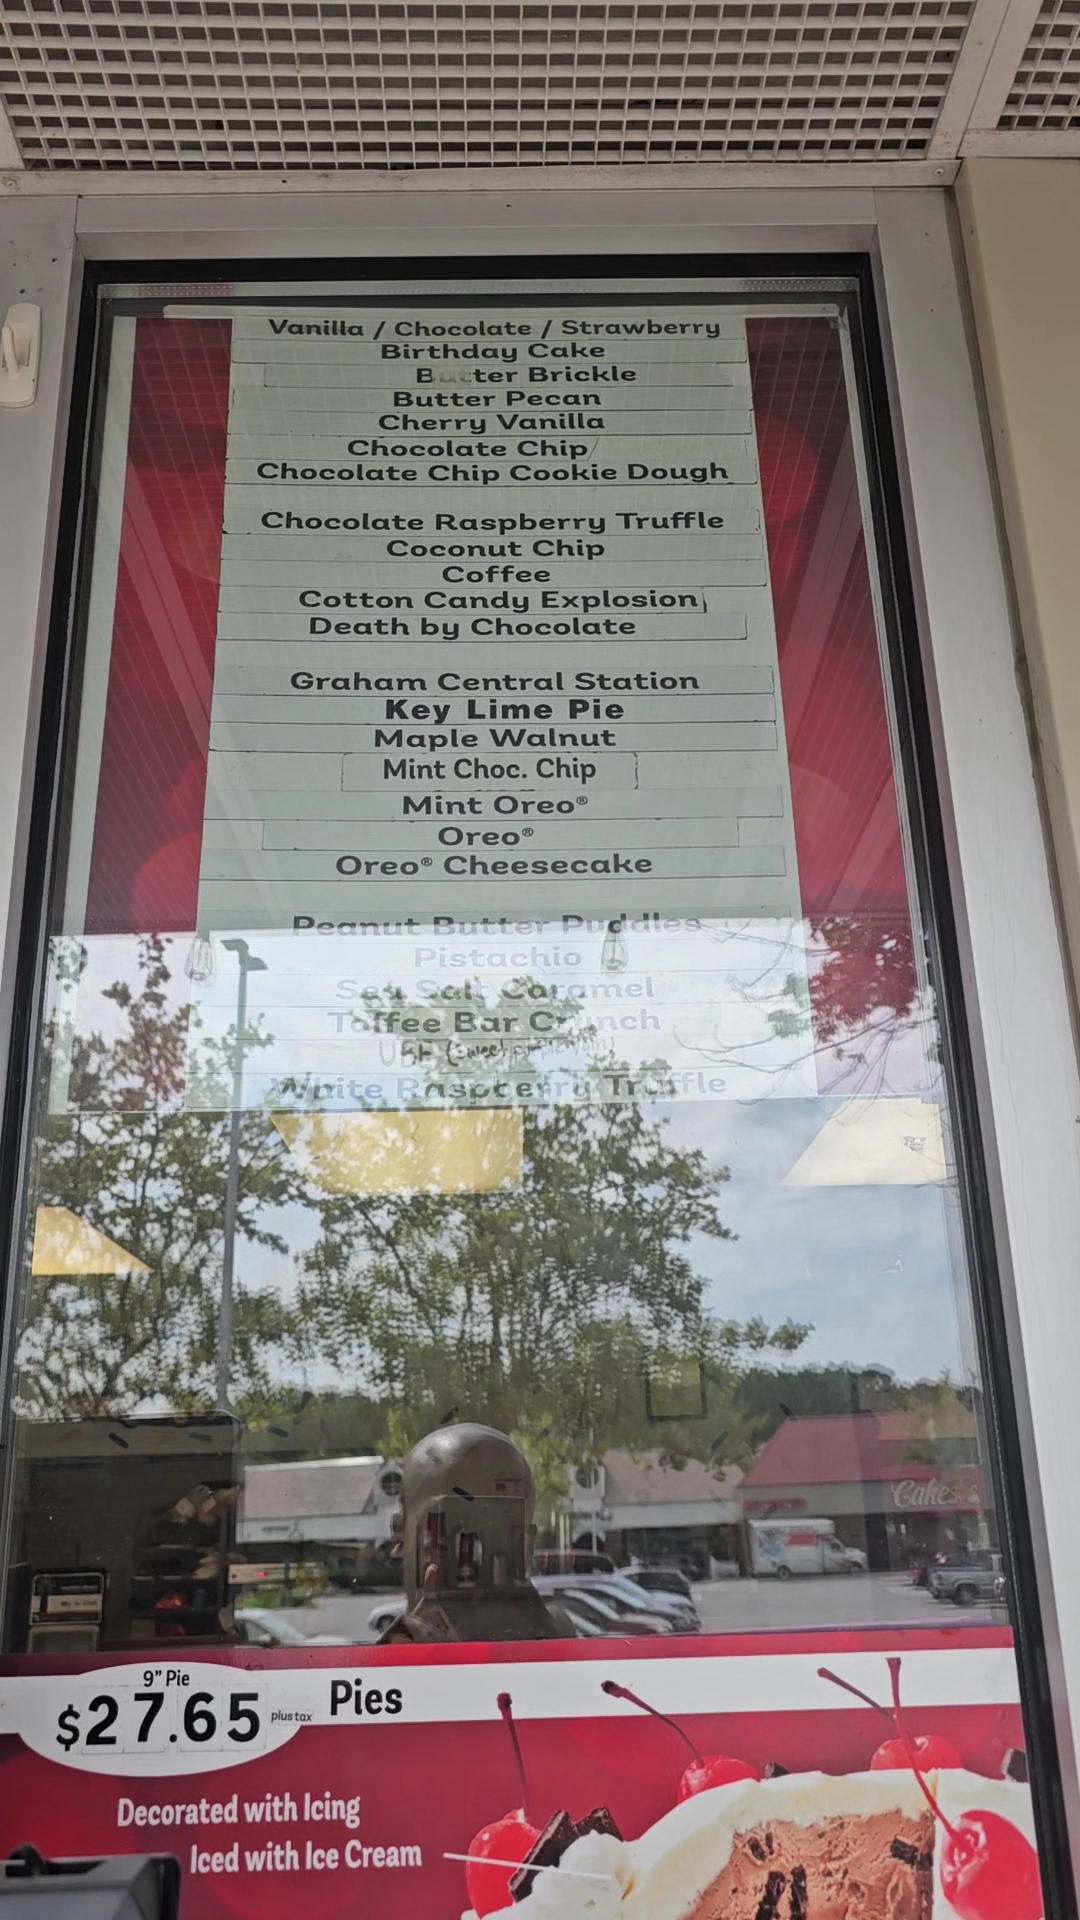 Vanilla / Chocolate / Strawberry
Birthday Cake
Butter Brickle
Butter Pecan
Cherry Vanilla
Chocolate Chip
Chocolate Chip Cookie Dough
Chocolate Raspberry Truffle
Coconut Chip
Coffee
Cotton Candy Explosion
Death by Chocolate
Graham Central Station
Key Lime Pie
Maple Walnut
Mint Choc. Chip
Mint Oreo®
Oreo®
Oreo® Cheesecake
Peanut Butter Puddles
Pistachio
Sea Salt Caramel
Toffee Bar Crunch
UBE (sweet purple yam)
White Raspberry Truffle
Cakes &
9" Pie
$27.65 plus tax
Pies
Decorated with Icing
Iced with Ice Cream